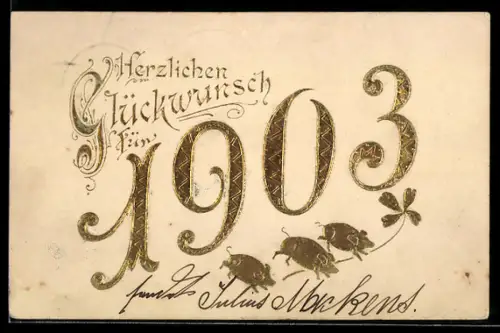 Herzlichen
Glückwunsch
für
1903
Julius